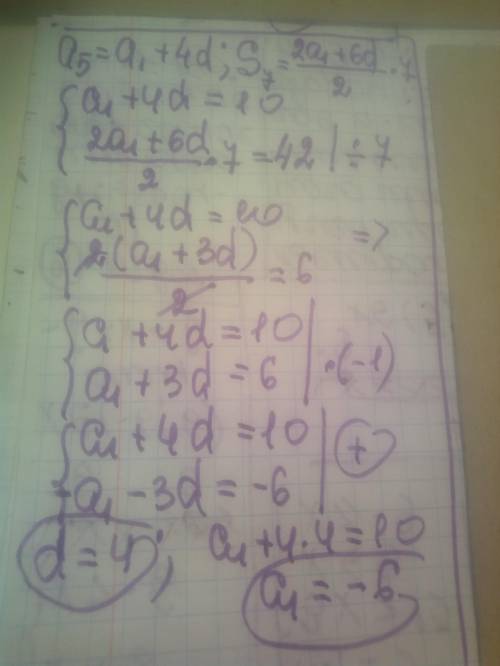 a₅=a₁+4d; S₇=(2a₁+6d)/2·7
{a₁+4d=10
{(2a₁+6d)/2·7=42|÷7
{a₁+4d=10
{2·(a₁+3d)/2=6 =>
{a₁+4d=10
{a₁+3d=6 |·(-1)
{a₁+4d=10 | +
{-a₁-3d=-6
d=4; a₁+4·4=10
a₁=-6